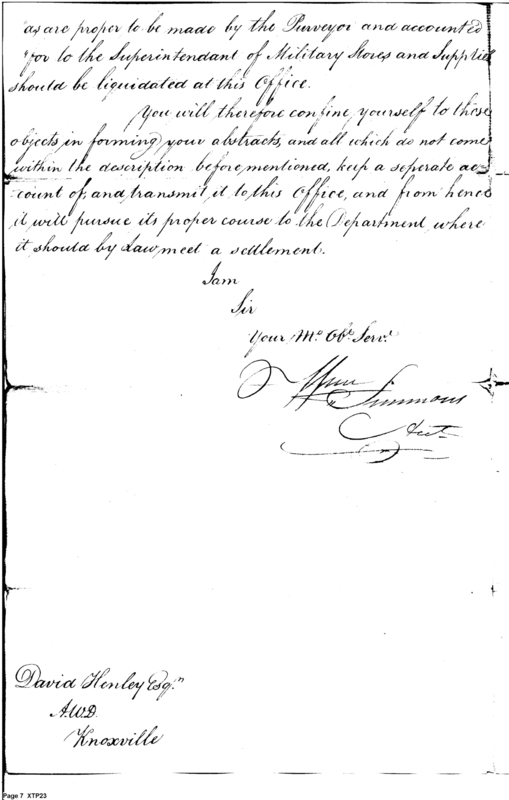 "as are proper to be made by the Purveyor and accounted
"for to the Superintendant of Military Stores and Supplies
should be liquidated at this Office.
You will therefore confine yourself to these
objects in forming your abstracts, and all which do not come
within the description before mentioned, keep a seperate ac-
count of, and transmit it to this Office, and from hence
it will pursue its proper course to the Department where
it should by Law, meet a settlement.
I am
Sir
Your Mo. Obt. Servt.
Wm Simmons
Acct
David Henley Esqr.
A.W.D.
Knoxville
Page 7 XTP23